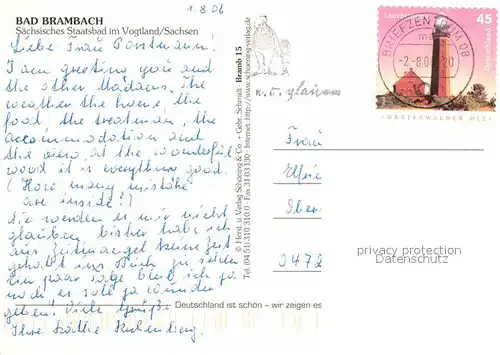 1.8.06
BAD BRAMBACH
Sächsisches Staatsbad im Vogtland/Sachsen
Liebe Frau
I am greeting you and
the other Madams. The
weather the home, the
food, the treatmen, the
accommodation and
the view at the wonderful
wood it is everything good.
(How many mistake
are inside?)
Sie werden es mir nicht
glauben bisher hab ich
aus Zeitmangel keine Zeit
gehabt ins Buch zu sehen
Ein paar Tage bleib ich ja
noch es soll ja wunder
geben! Viele Grüße
Ihre Käthe
Deutschland ist schön – wir zeigen es
© Horst u. Verlag Schöning & Co. + Gebr. Schmidt Bramb 15
Tel. (04 51) 310 310 Fax 31 03 130 Internet: http://www.schoening-verlag.de
BRIEFZENTRUM 08
45
GREIFSWALDER OIE
Frau
0472
privacy protection
Datenschutz